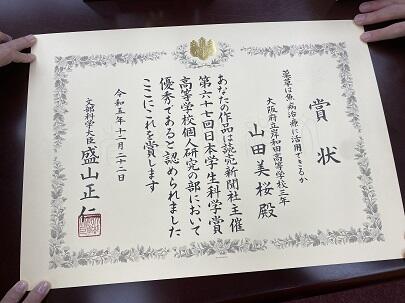 賞状
薬草は魚病治療に活用できるか
大阪府立岸和田高等学校三年
山田美桜殿
あなたの作品は読売新聞社主催
第六十七回日本学生科学賞
高等学校個人研究の部において
優秀であると認められました
ここにこれを賞します
令和五年十二月二十二日
文部科学大臣 盛山正仁